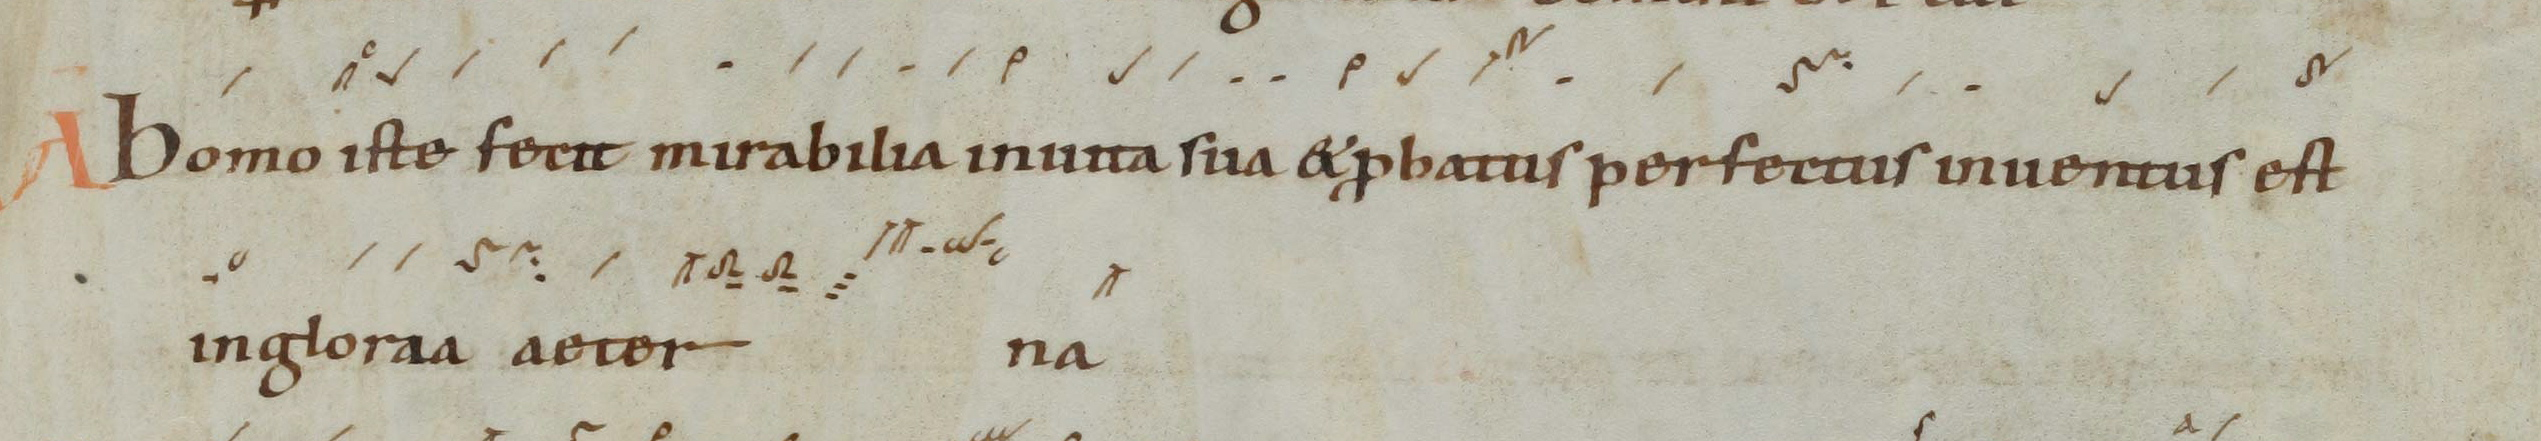 A homo iste fecit mirabilia in uita sua & ꝓbatus perfectus inuentus est
in gloraa aeter na